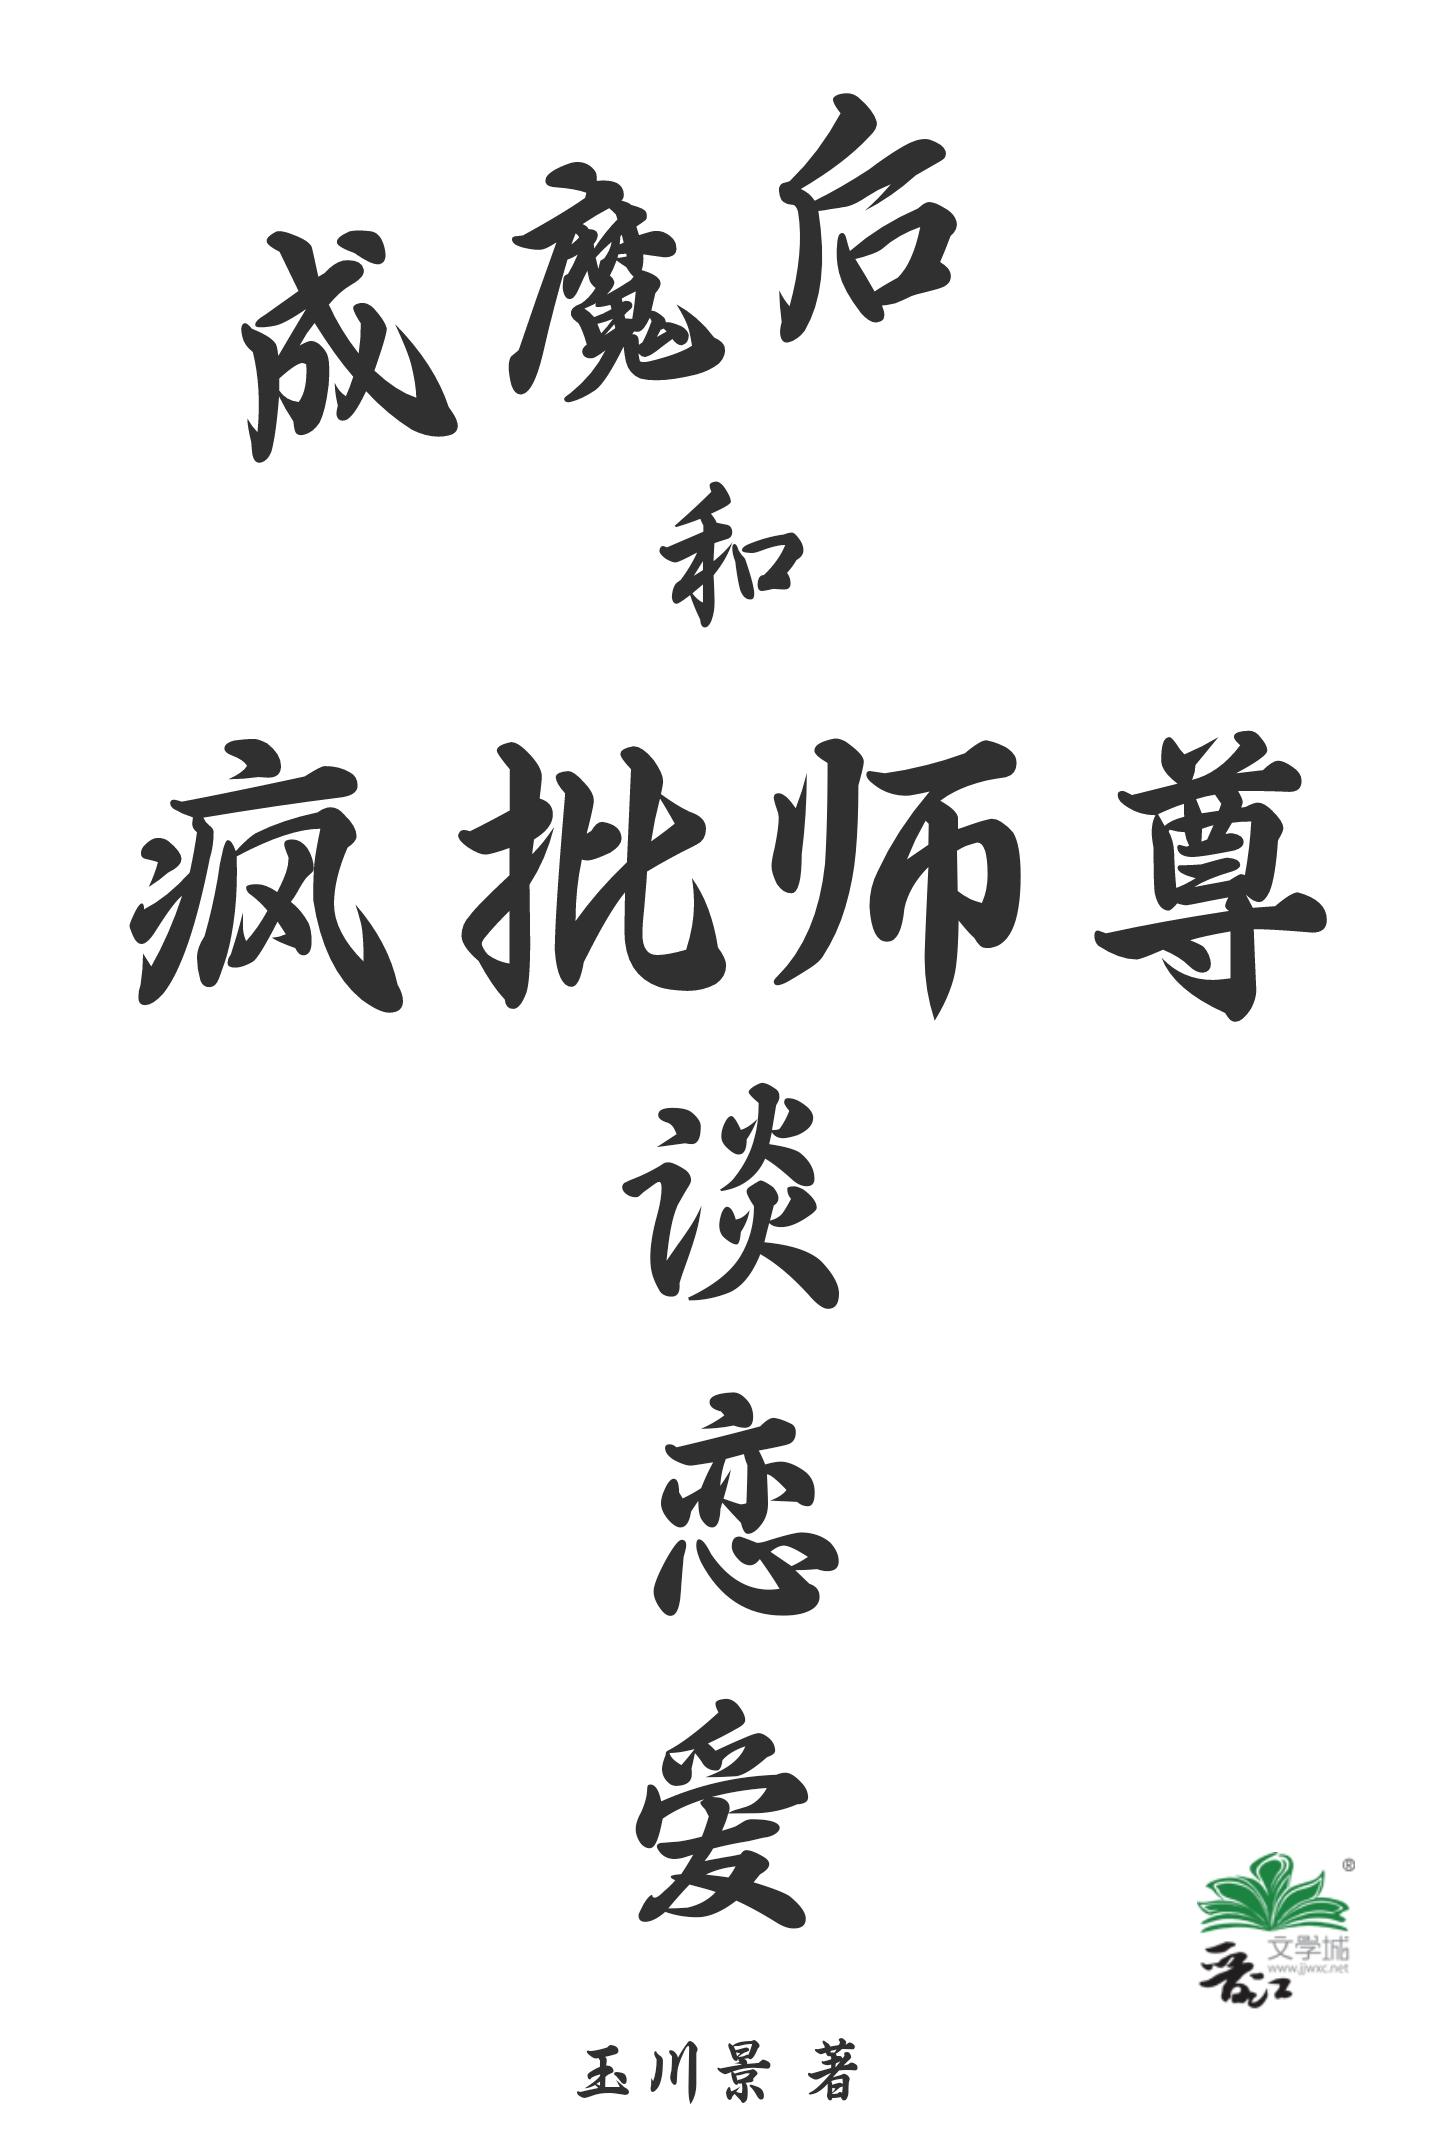 成魔后
和
疯批师尊
谈
恋
爱
®
文學城
www.jjwxc.net
晋江
玉川景 著